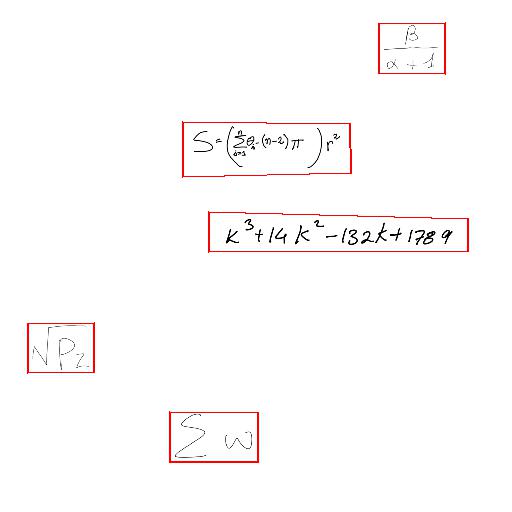 \frac{\beta}{\alpha + 1}
S = \left( \sum_{i=1}^{n} \theta_i - (n-2)\pi \right) r^2
k^3 + 14k^2 - 132k + 1789
\sqrt{P_2}
\sum w